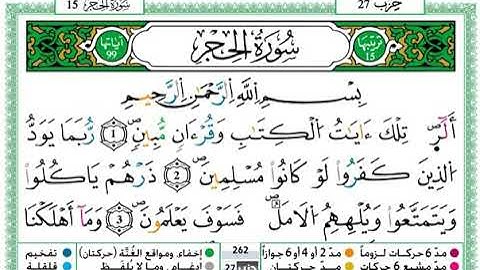 حزب 27 سُورَةُ الحِجْر 15
ترتيبها 15 سُورَةُ الحِجْرِ آياتها 99
بِسْمِ اللَّهِ الرَّحْمَٰنِ الرَّحِيمِ
أَلَٓرۖ تِلْكَ ءَايَٰتُ الْكِتَٰبِ وَقُرْءَانٍ مُّبِينٍۖ 1 رُّبَمَا يَوَدُّ
الذِينَ كَفَرُوا لَوْ كَانُوا مُسْلِمِينَۖ 2 ذَرْهُمْ يَاكُلُوا
وَيَتَمَتَّعُوا وَيُلْهِهِمُ الَامَلُۖ فَسَوْفَ يَعْلَمُونَۖ 3 وَمَآ أَهْلَكْنَا
مدّ 6 حركات لزوماً مدّ 2 أو 4 أو 6 جوازاً 262 إخفاء، ومواقع الغُنَّة (حركتان) تفخيم
مدّ مشبع 6 حركات مدّ حركتان 27 إدغام، وما لا يُلفَظ قلقلة